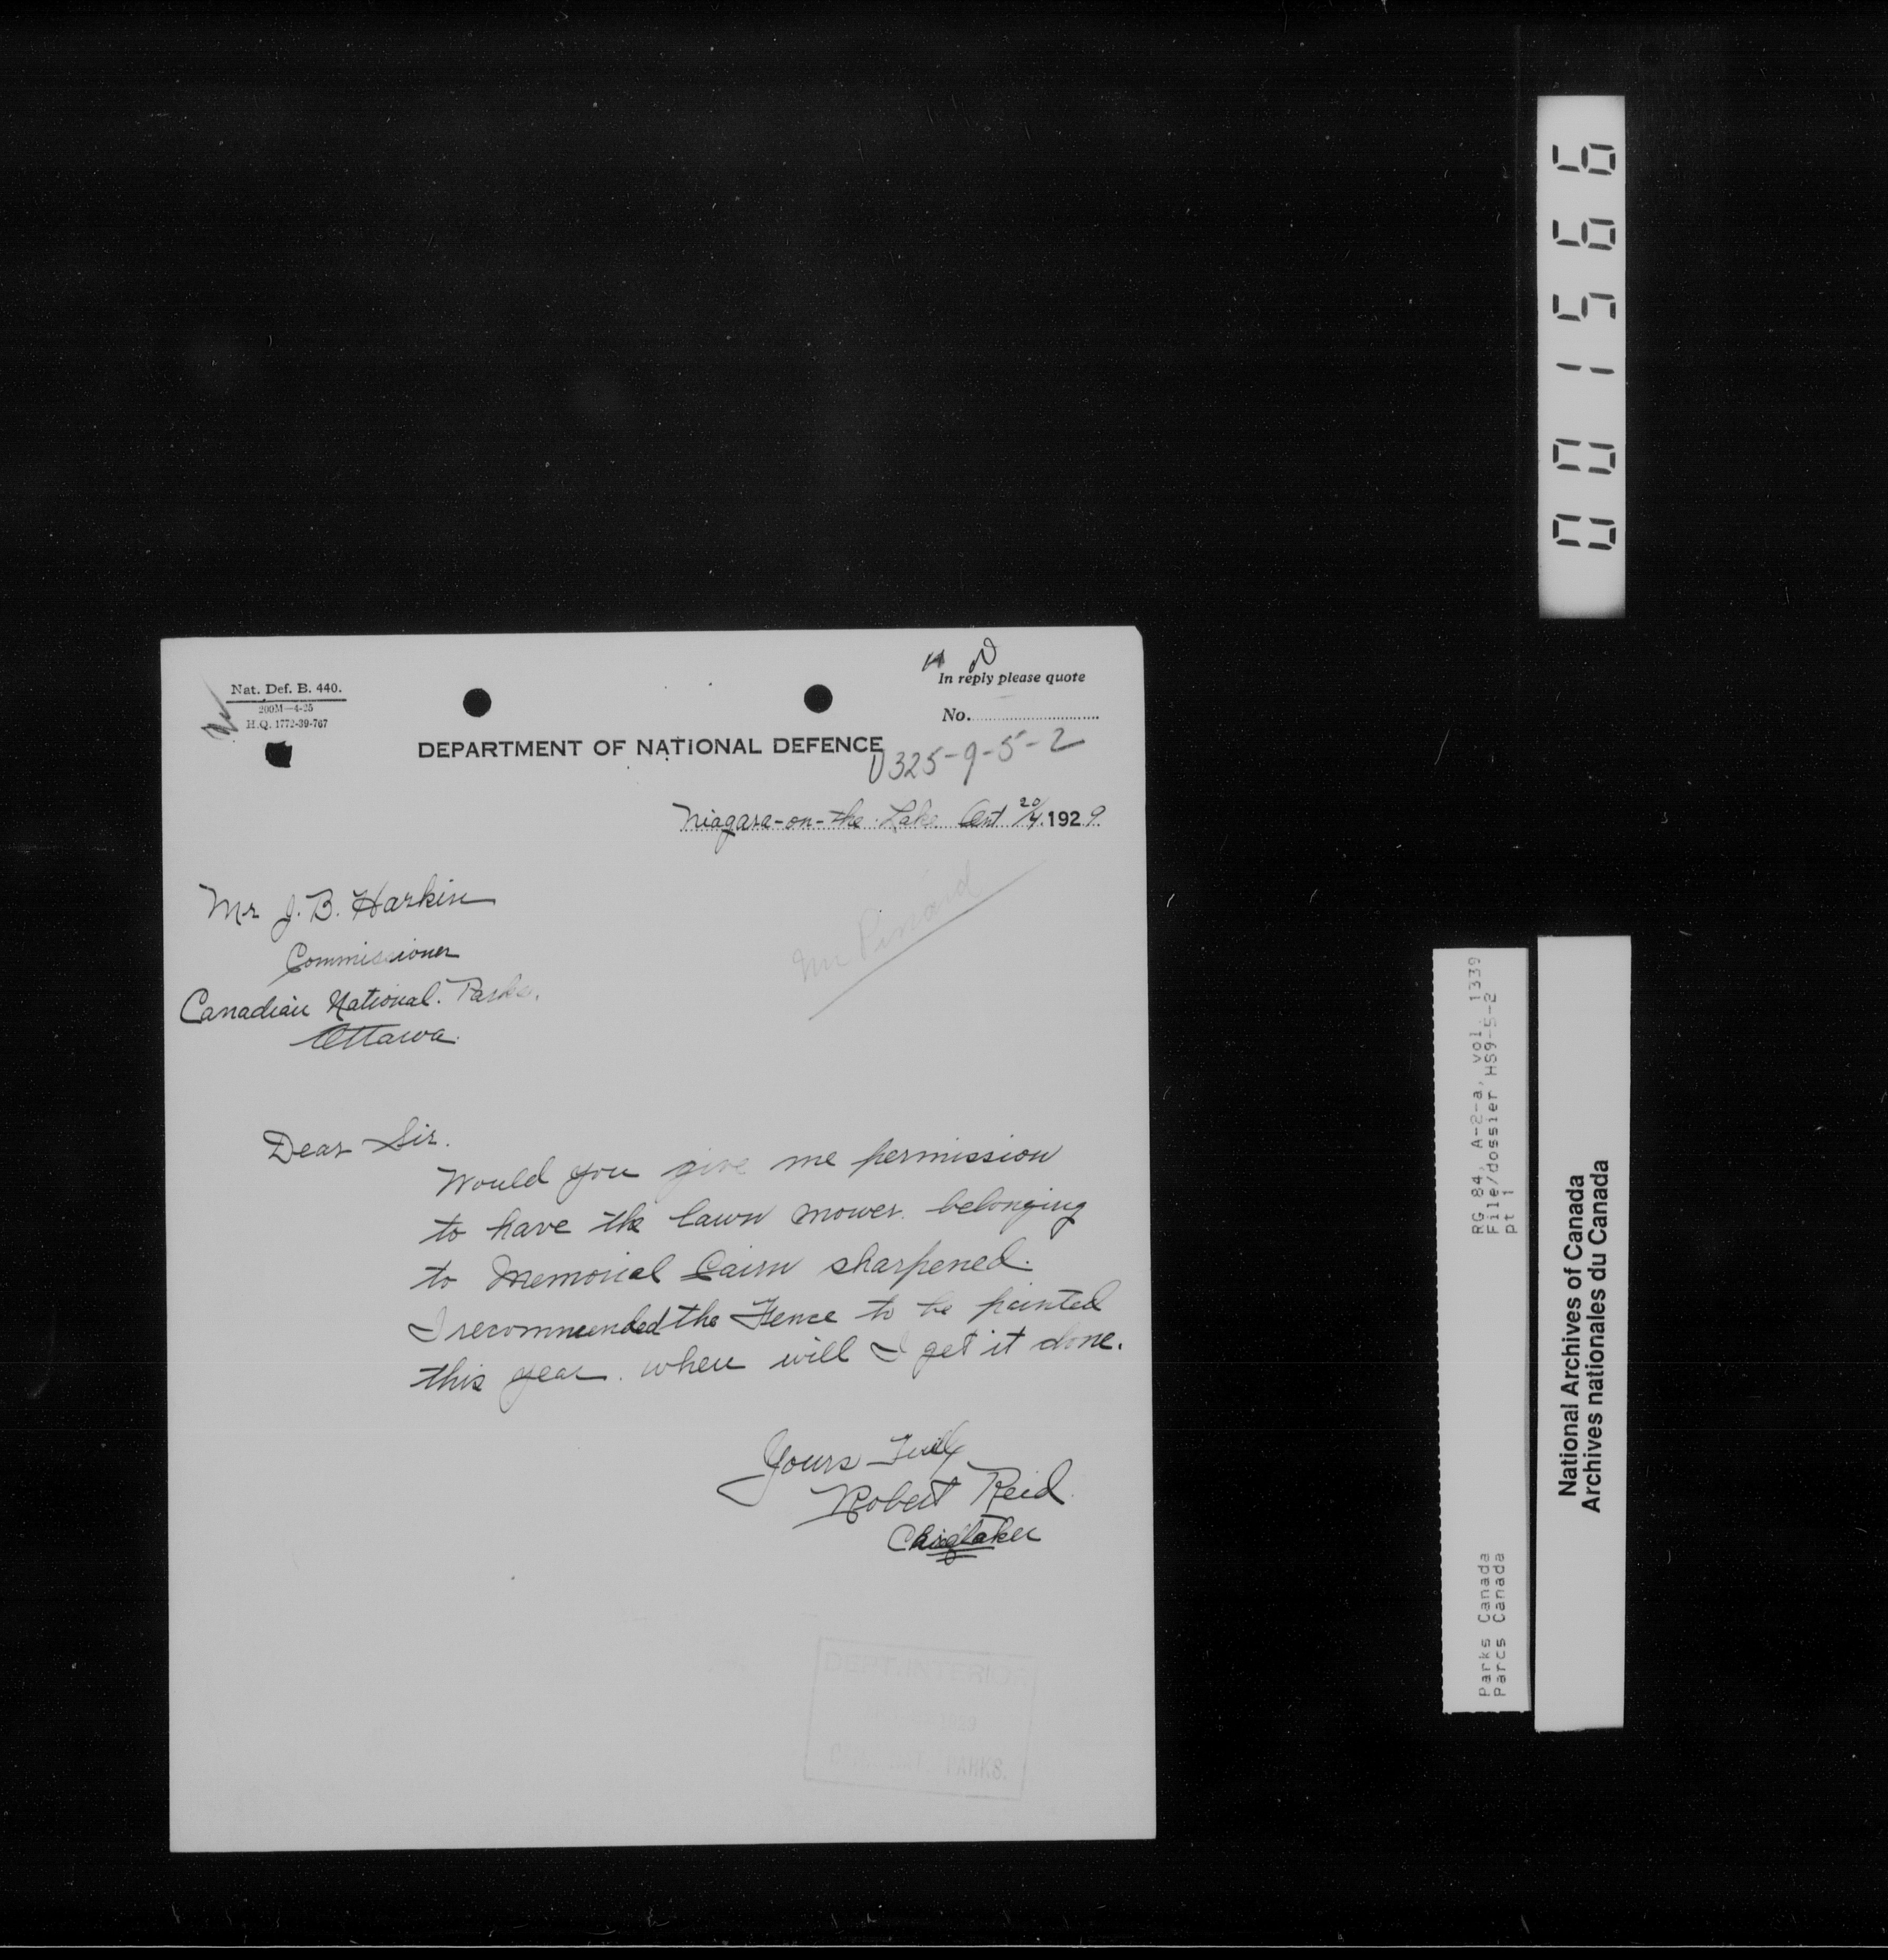 Nat. Def. B. 440.
200M—4-25
H.Q. 1772-39-767
In reply please quote
No.
DEPARTMENT OF NATIONAL DEFENCE
325-9-5-2
Niagara-on-the Lake Ont 20/4 1929
Mr J. B. Harkin
Commissioner
Canadian National Parks.
Ottawa.
Mr Pinard
Dear Sir.
Would you give me permission
to have the lawn mower belonging
to Memorial Cairn sharpened.
I recommended the Fence to be painted
this year. when will I get it done.
Yours Truly
Robert Reid.
Caretaker
DEPT. INTERIOR
1929
PARKS.
001566
RG 84, A-2-a, vol. 1339
File/dossier HS9-5-2
pt 1
Parks Canada
Parcs Canada
National Archives of Canada
Archives nationales du Canada